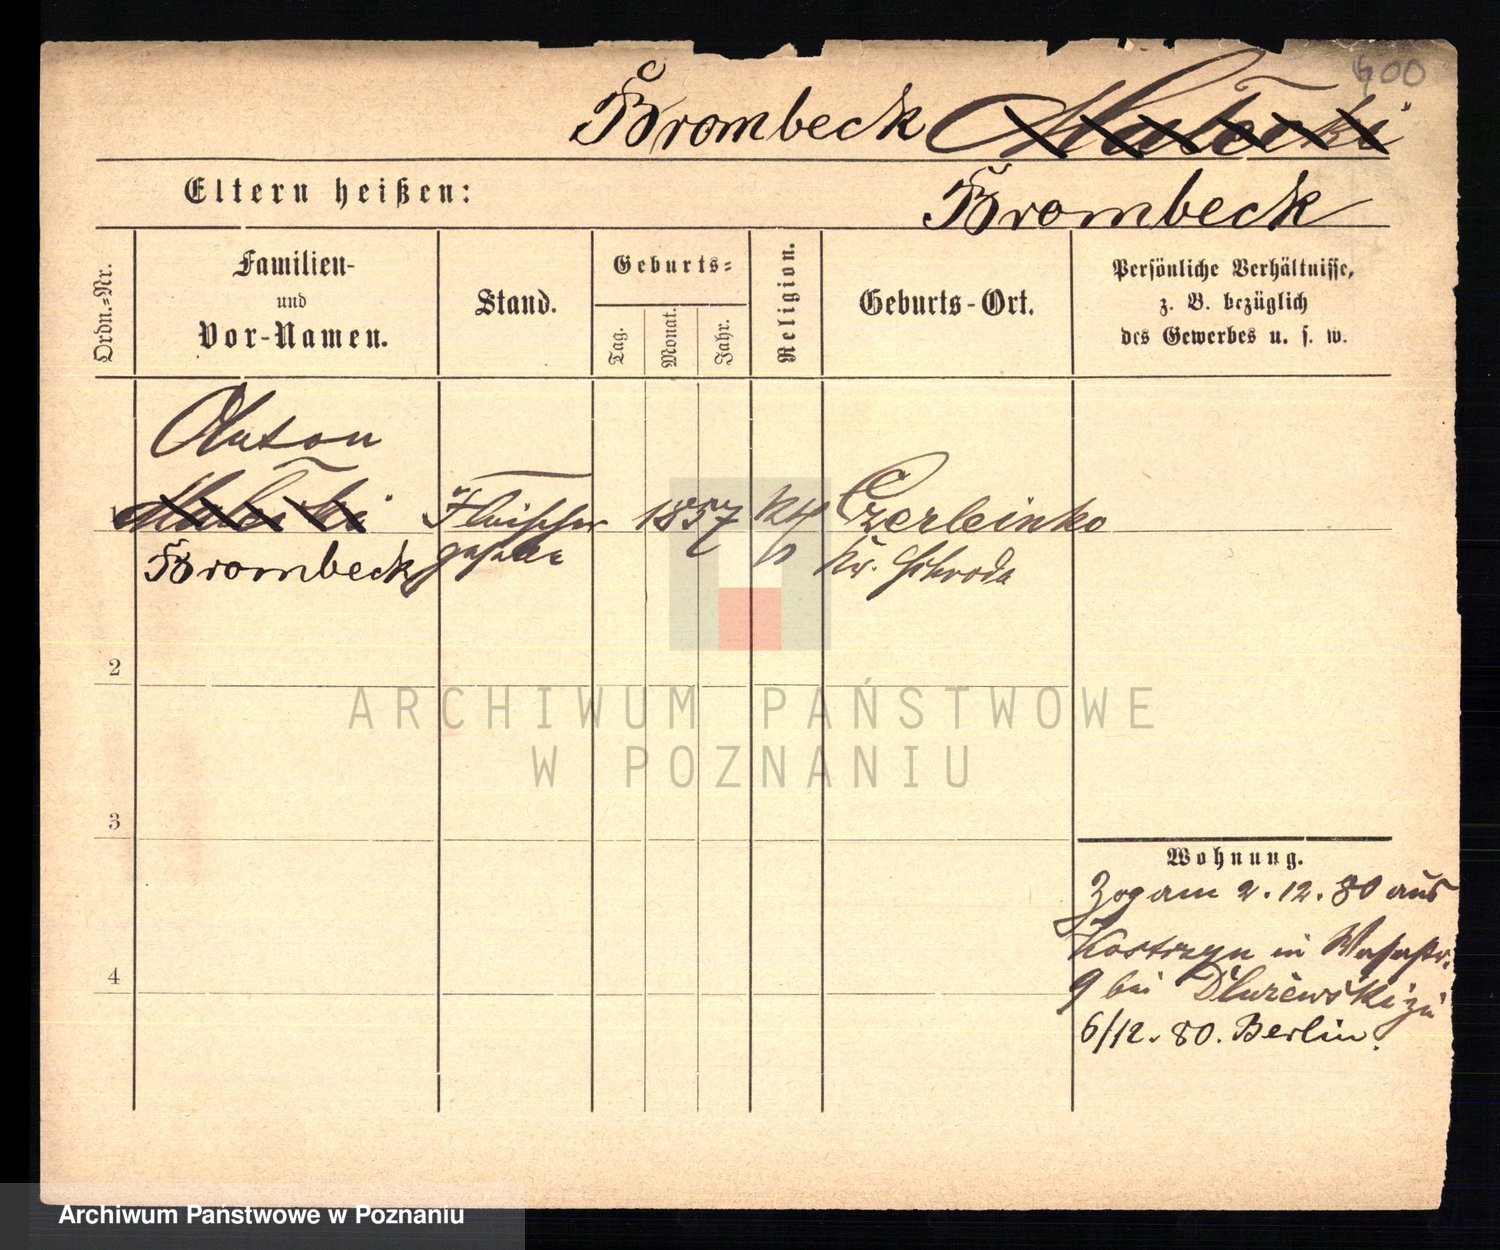 600
Brombeck Malecki
Eltern heißen: Brombeck
Ordn.-Nr.
Familien-
und
Vor-Namen.
Stand.
Geburts-
Tag.
Monat.
Jahr.
Religion.
Geburts-Ort.
Persönliche Verhältnisse,
z. B. bezüglich
des Gewerbes u. s. w.
Anton
Malecki Fleischer 1857 Kth Czerleinko
Brombeck geselle Kr. Schroda
2
3
4
Wohnung.
Zog am 2.12.80 aus
Kostrzyn in
9 bei Dłużewski
6/12.80. Berlin.
ARCHIWUM PAŃSTWOWE
W POZNANIU
Archiwum Państwowe w Poznaniu